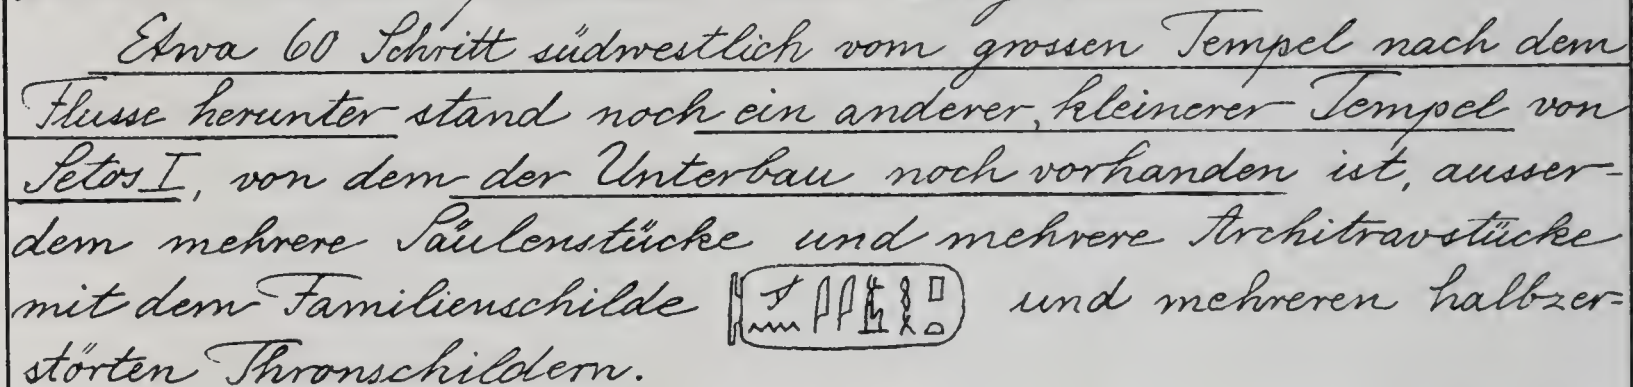 Etwa 60 Schritt südwestlich vom grossen Tempel nach dem
Flusse herunter stand noch ein anderer, kleinerer Tempel von
Setos I, von dem der Unterbau noch vorhanden ist, ausser-
dem mehrere Säulenstücke und mehrere Architravstücke
mit dem Familienschilde und mehreren halbzer-
störten Thronschildern.